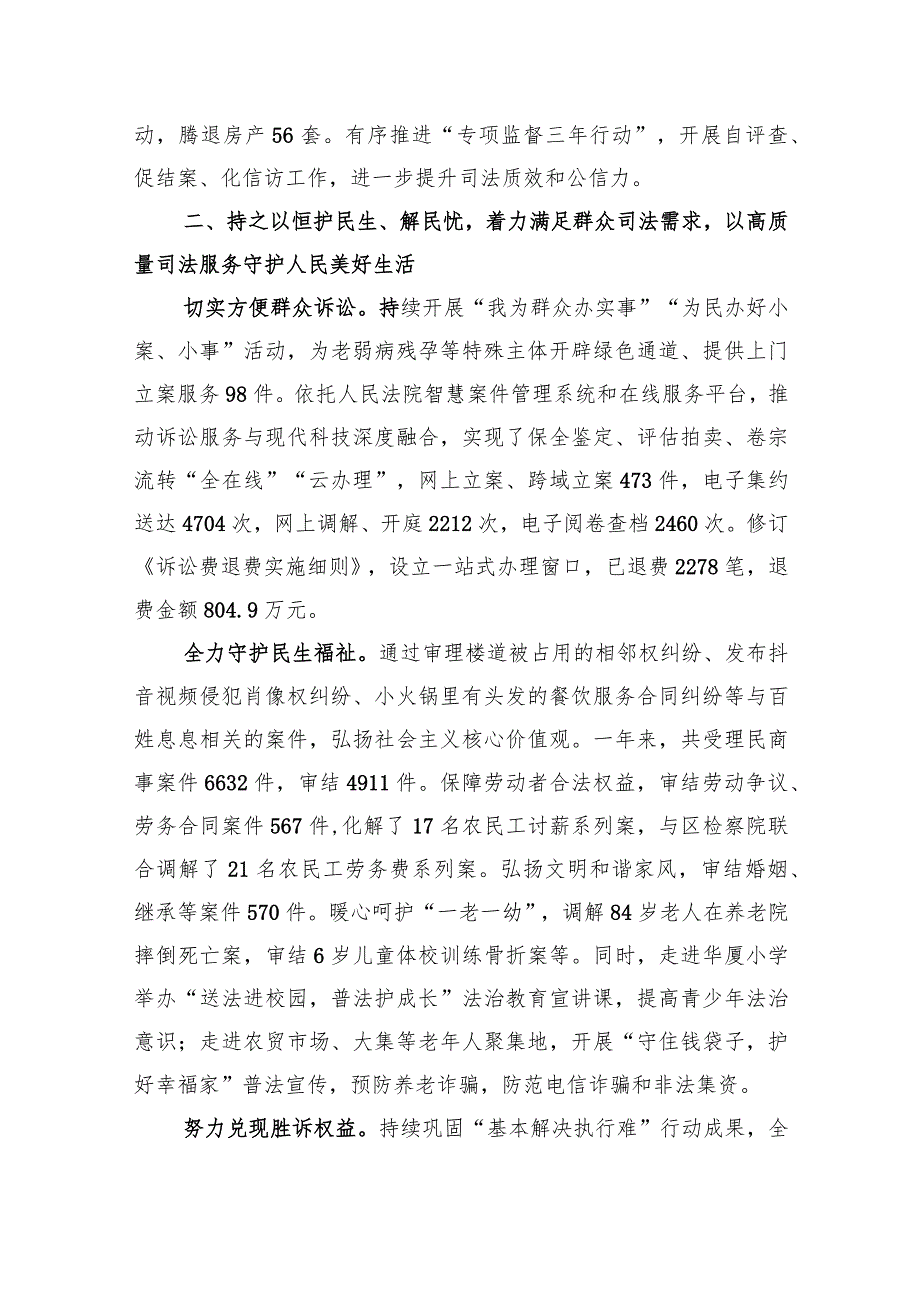 动，腾退房产 56 套。有序推进“专项监督三年行动”，开展自评查、
促结案、化信访工作，进一步提升司法质效和公信力。
二、持之以恒护民生、解民忧，着力满足群众司法需求，以高质
量司法服务守护人民美好生活
切实方便群众诉讼。持续开展“我为群众办实事”“为民办好小
案、小事”活动，为老弱病残孕等特殊主体开辟绿色通道、提供上门
立案服务 98 件。依托人民法院智慧案件管理系统和在线服务平台，推
动诉讼服务与现代科技深度融合，实现了保全鉴定、评估拍卖、卷宗
流转“全在线”“云办理”，网上立案、跨域立案 473 件，电子集约
送达 4704 次，网上调解、开庭 2212 次，电子阅卷查档 2460 次。修订
《诉讼费退费实施细则》，设立一站式办理窗口，已退费 2278 笔，退
费金额 804.9 万元。
全力守护民生福祉。通过审理楼道被占用的相邻权纠纷、发布抖
音视频侵犯肖像权纠纷、小火锅里有头发的餐饮服务合同纠纷等与百
姓息息相关的案件，弘扬社会主义核心价值观。一年来，共受理民商
事案件 6632 件，审结 4911 件。保障劳动者合法权益，审结劳动争议、
劳务合同案件 567 件,化解了 17 名农民工讨薪系列案，与区检察院联
合调解了 21 名农民工劳务费系列案。弘扬文明和谐家风，审结婚姻、
继承等案件 570 件。暖心呵护“一老一幼”，调解 84 岁老人在养老院
摔倒死亡案，审结 6 岁儿童体校训练骨折案等。同时，走进华厦小学
举办“送法进校园，普法护成长”法治教育宣讲课，提高青少年法治
意识；走进农贸市场、大集等老年人聚集地，开展“守住钱袋子，护
好幸福家”普法宣传，预防养老诈骗，防范电信诈骗和非法集资。
努力兑现胜诉权益。持续巩固“基本解决执行难”行动成果，全